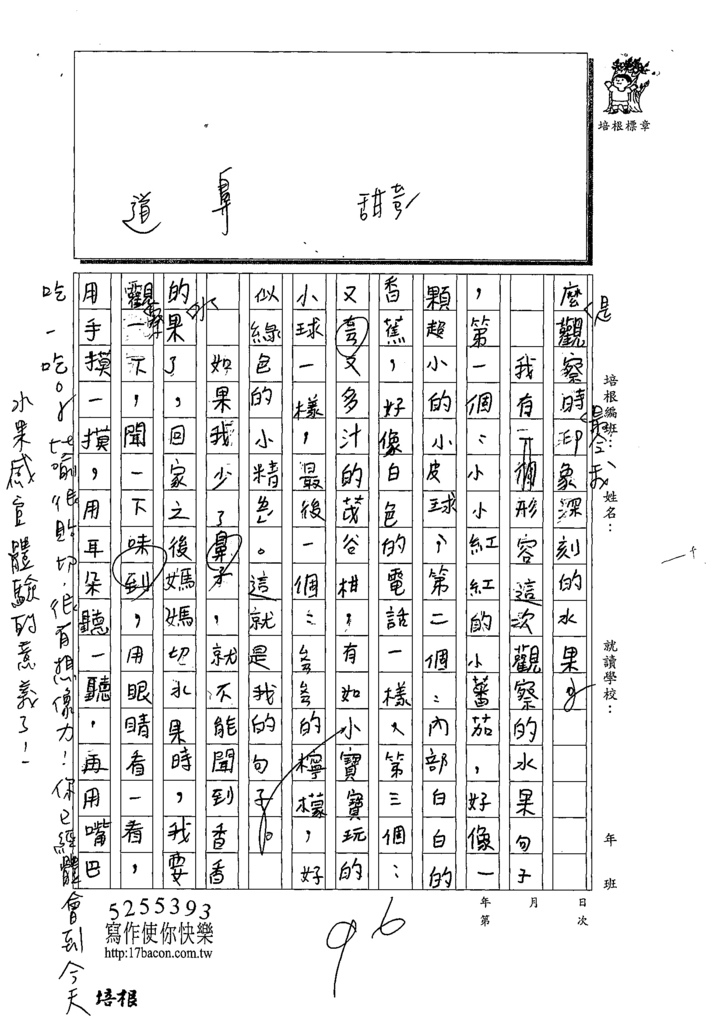 培根標章
道 鼻 甜
麼觀察時印象深刻的水果
是
是令我
我有一個形容這次觀察的水果句子
，第一個：小小紅紅的小蕃茄，好像一
顆超小的小皮球，第二個：內部白白的
香蕉，好像白色的電話一樣、第三個：
又多汁的茂谷柑，有如小寶寶玩的
小球一樣，最後一個：的檸檬，好
似綠色的小精。這就是我的句子。
如果我少了鼻子，就不能聞到香香
的果了，回家之後媽媽切水果時，我要
水
觀一下，聞一下味到，用眼睛看一看，
察
用手摸一摸，用耳朵聽一聽，再用嘴巴
吃一吃。
比喻很貼切，很有想像力！你已經體會到今天
水果感官體驗的意義了！
培根編班：
姓名：
就讀學校：
年 班
年 月 日
第 次
96
5255393
寫作使你快樂
http:17bacon.com.tw
培根